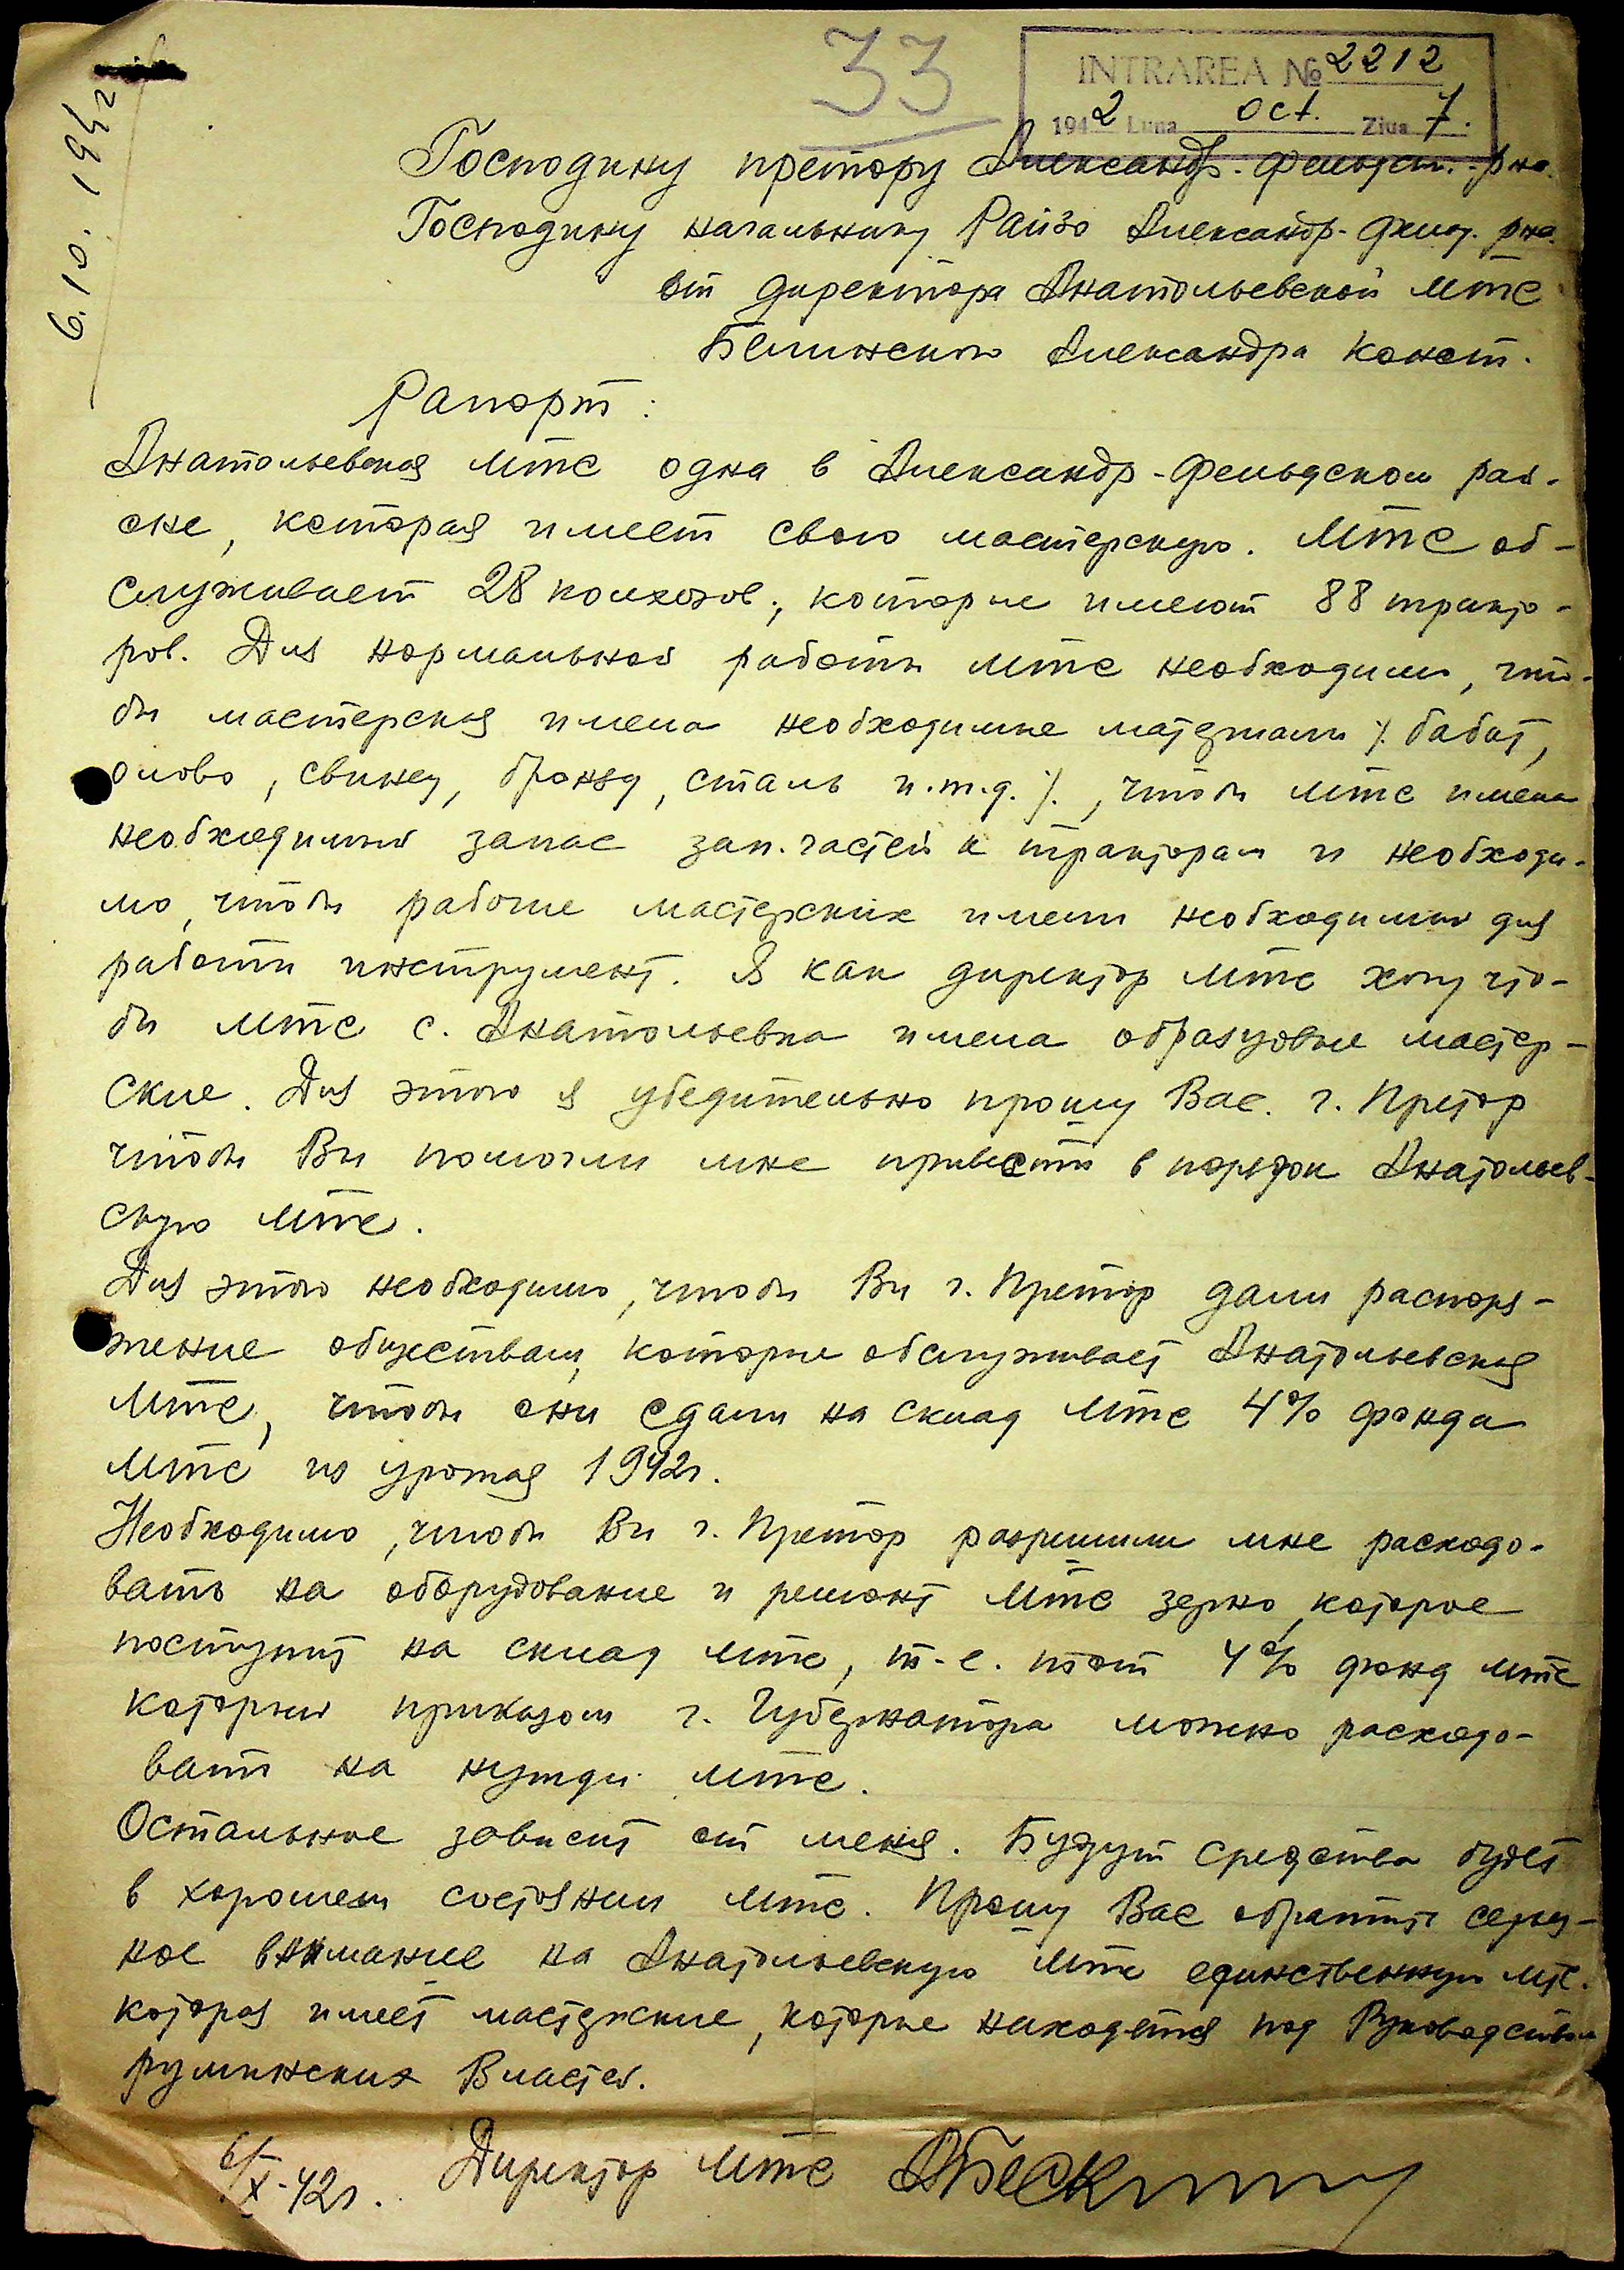 33
INTRAREA № 2212
1942 Luna oct. Ziua 7.
6.10.1942
Господину претору Александр.-фельдст.-рна.
Господину начальнику Райзо Александр-фельд. рна.
от директора Анатольевской мтс
Александра Конст.
Рапорт:
Анатольевская мтс одна в Александр-фельдском рай-
оне, которая имеет свою мастерскую. Мтс об-
служивает 28 колхозов, которые имеют 88 тракто-
ров. Для нормальной работы мтс необходимо, что-
бы мастерская имела необходимые материалы /. бабит,
олово, свинец, бронзу, сталь и.т.д. /., чтобы мтс имела
необходимый запас зап.частей к тракторам и необходи-
мо, чтобы рабочие мастерских имели необходимый для
работы инструмент. Я как директор мтс хочу что-
бы мтс с. Анатольевка имела образцовые мастер-
ские. Для этого я убедительно прошу Вас. г. Претор
чтобы Вы помогли мне привести в порядок Анатольев-
скую мтс.
Для этого необходимо, чтобы Вы г. Претор дали распоря-
жение обществам, которые обслуживает Анатольевская
мтс, чтобы они сдали на склад мтс 4% фонда
мтс из урожая 1942г.
Необходимо, чтобы Вы г. Претор разрешили мне расходо-
вать на оборудование и ремонт мтс зерно, которое
поступит на склад мтс, т-е. тот 4% фонд мтс
который приказом г. Губернатора можно расходо-
вать на нужды мтс.
Остальное зависит от меня. Будут средства будет
в хорошем состоянии мтс. Прошу Вас обратить серьез-
ное внимание на Анатольевскую мтс единственную мтс.
которая имеет мастерские, которые находятся под Руководством
румынских Властей.
6/X-42г. Директор мтс